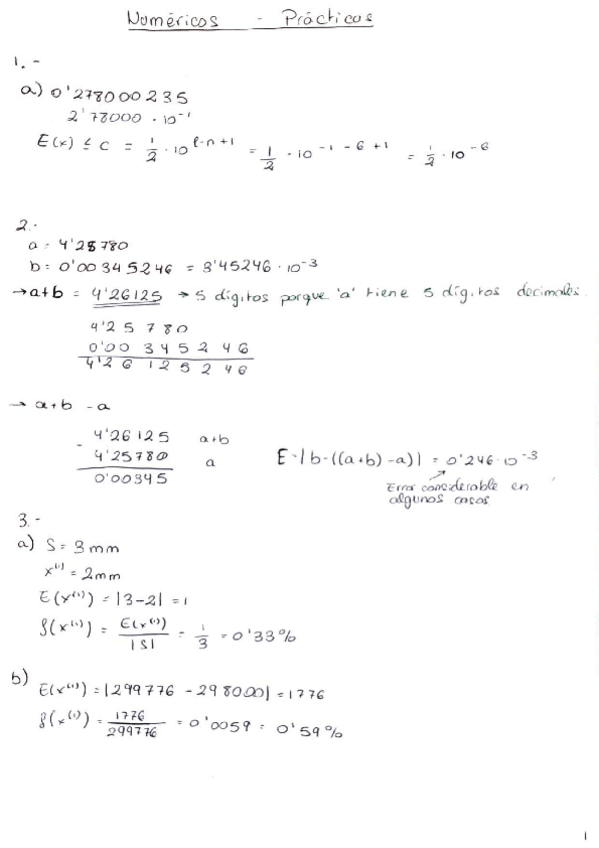 Numéricos - Prácticas
1.-
a) 0'278000235
2'78000 · 10⁻¹
E(x) ≤ c = 1/2 · 10^(l-n+1) = 1/2 · 10^(-1-6+1) = 1/2 · 10⁻⁶
2.-
a = 4'25780
b = 0'00345246 = 3'45246 · 10⁻³
→ a+b = 4'26125 → 5 dígitos porque 'a' tiene 5 dígitos decimales.
4'25780
0'00345246
4'26125246
→ a+b - a
- 4'26125 a+b
4'25780 a
0'00345
E = |b - ((a+b) - a)| = 0'246 · 10⁻³
Error considerable en
algunos casos
3.-
a) S = 3mm
x⁽¹⁾ = 2mm
E(x⁽¹⁾) = |3-2| = 1
δ(x⁽¹⁾) = E(x⁽¹⁾)/|S| = 1/3 = 0'33%
b) E(x⁽¹⁾) = |299776 - 298000| = 1776
δ(x⁽¹⁾) = 1776/299776 = 0'0059 = 0'59%
1